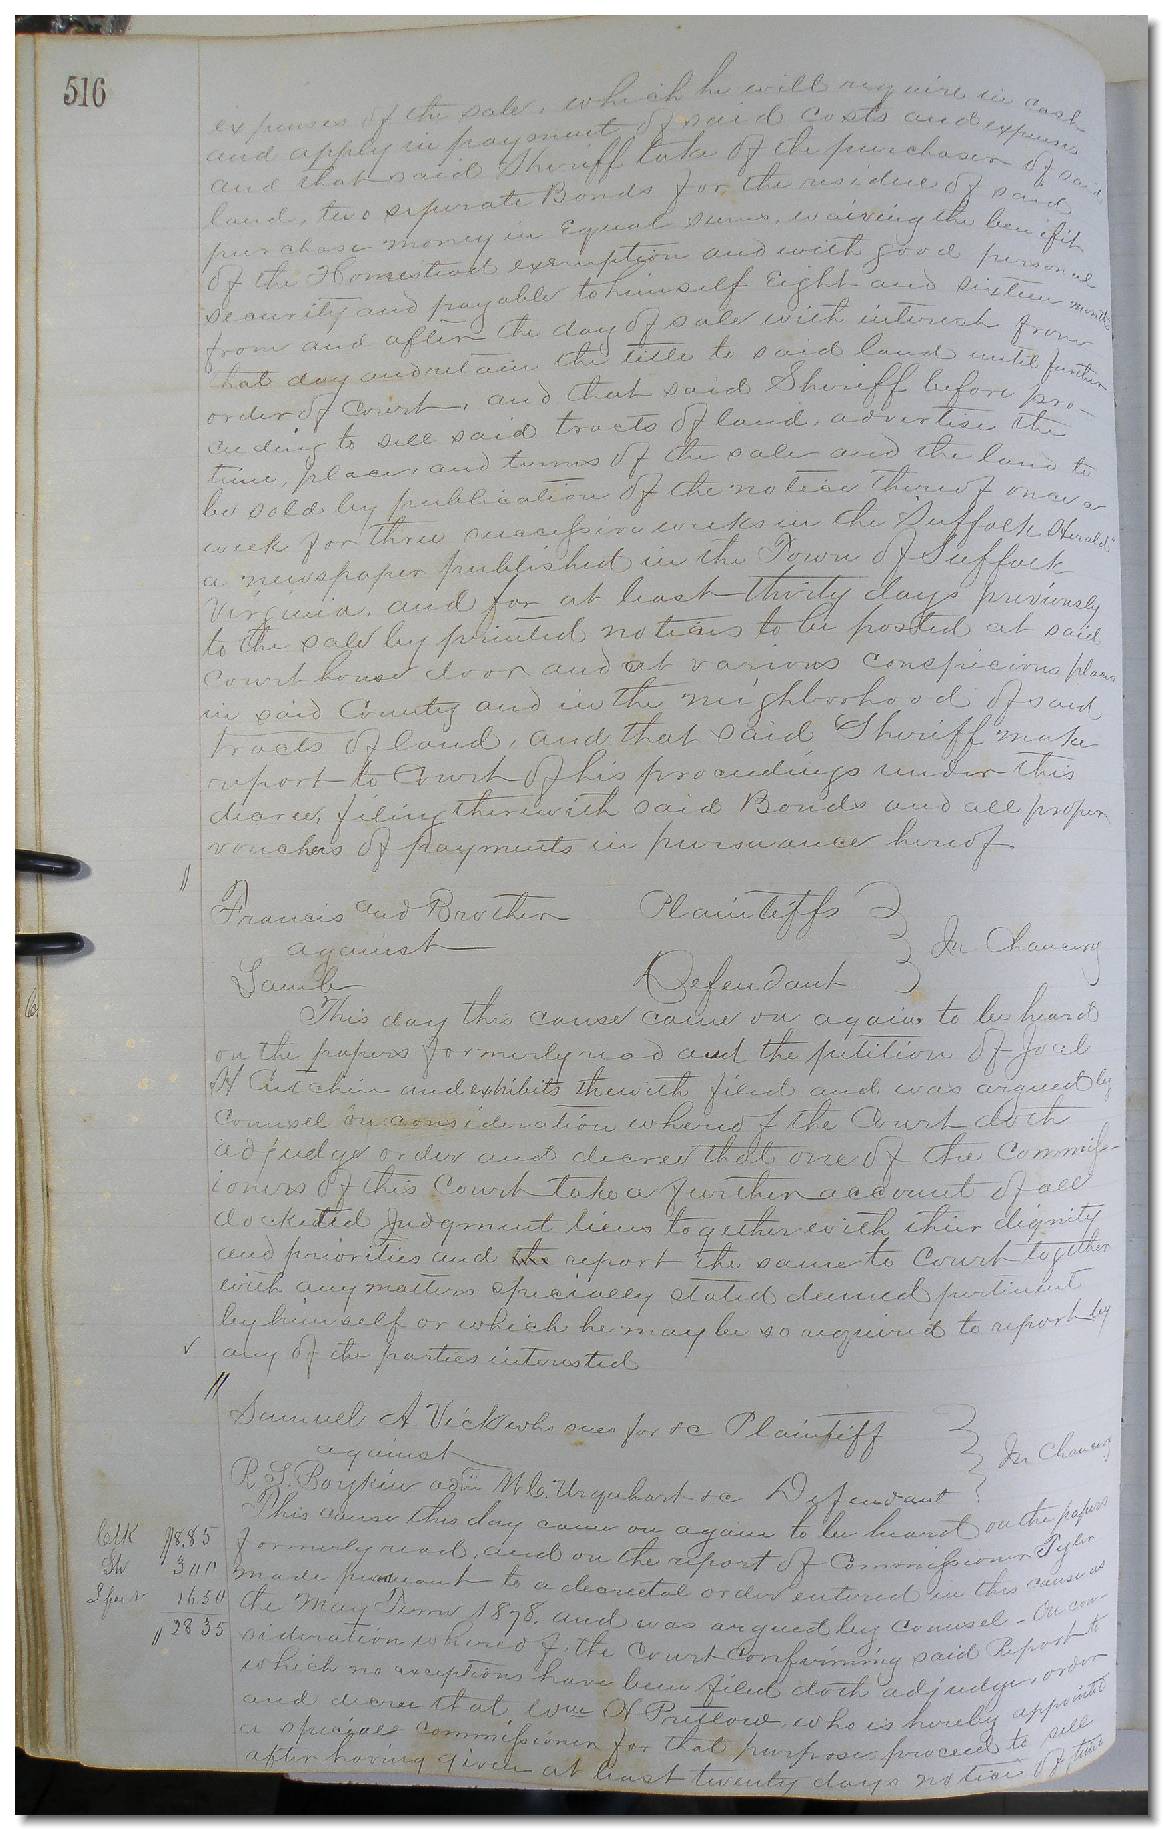 516
expenses of the sale, which he will require in cash
and apply in payment of said costs and expenses
and that said Sheriff take of the purchaser of said
land, two seperate Bonds for the residue of said
purchase money in Equal sums, waiving the benifit
of the Homestead exemption and with good personal
security and payable to himself Eight and sixteen months
from and after the day of sale with interest from
that day and retain the title to said land until further
order of Court, and that said Sheriff before pro-
ceeding to sell said tracts of land, advertise the
time, place, and terms of the sale and the land to
be sold by publication of the notice thereof once a
week for three successive weeks in the "Suffolk Herald"
a newspaper published in the Town of Suffolk
Virginia, and for at least thirty days previously
to the sale by printed notices to be posted at said
Court house door and at various conspicious places
in said County and in the neighborhood of said
tracts of land, and that said Sheriff make
report to Court of his proceedings under this
decree, filing therewith said Bonds and all proper
vouchers of payments in pursuance hereof
"
Francis and Brother Plaintiffs
against In Chancery
Lamb Defendant
This day this cause came on again to be heard
on the papers formerly read and the petition of Joel
H and exhibits thewith filed and was argued by
Counsel on consideration whereof the Court doth
adjudge order and decree that one of the Commiss-
ioners of this Court take a further account of all
docketed Judgment liens together with their dignity
and priorities and the report the same to Court together
with any matters specially stated deemed pertinent
by himself or which he may be so required to report by
any of the parties interested
"
Samuel A Vick who sues for &c Plaintiff
against In Chancery
R. S. Boykin admr W. C. Urquhart &c Defendant
This cause this day came on again to be heard on the papers
Clk 8.85 formerly read, and on the report of Commissioner Pyler
Sh 3 00 made pursuant to a decretal order entered in this cause at
16.50 the May Term 1878. and was argued by Counsel - On con-
28 35 sideration whereof, the Court confirming said Report to
which no exceptions have been filed doth adjudge, order
and decree that Wm H Pretlow, who is hereby appointed
a special commissioner for that purpose proceed to sell
after having given at least twenty days notice of time